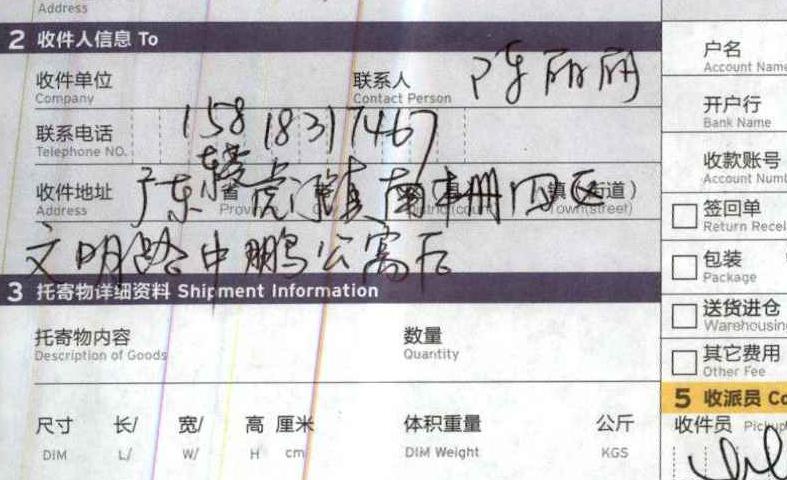 Address
2 收件人信息 To
收件单位
Company
联系人 陈丽丽
Contact Person
联系电话 15818317467
Telephone NO.
收件地址 广东 东莞 虎门镇 南册四区
Address
省
Province
镇(街道)
Town(street)
文明路中鹏公寓后
3 托寄物详细资料 Shipment Information
托寄物内容
Description of Goods
数量
Quantity
尺寸 长/ 宽/ 高 厘米
DIM L/ W/ H cm
体积重量 公斤
DIM Weight KGS
户名
Account Name
开户行
Bank Name
收款账号
Account Num
签回单
Return Recei
包装
Package
送货进仓
Warehousing
其它费用
Other Fee
5 收派员 Co
收件员 Pickup